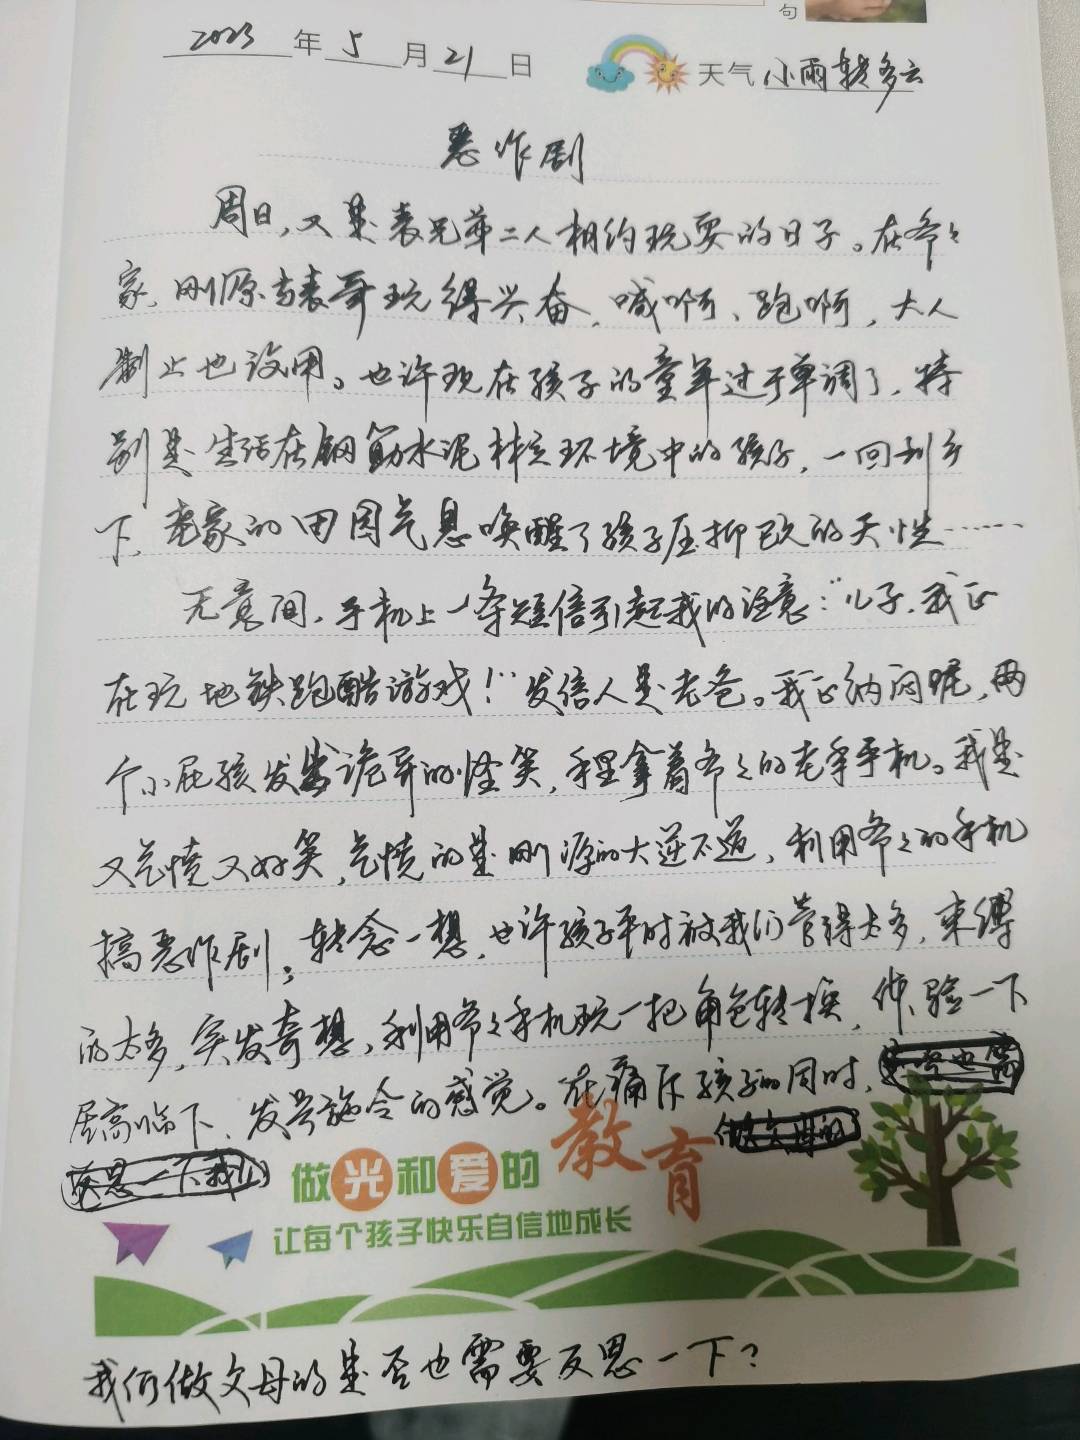 句
2023年5月21日 天气 小雨转多云
恶作剧
周日，又是表兄弟二人相约玩耍的日子。在爷々
家，刚源与表哥玩得兴奋，喊啊、跑啊，大人
制止也没用。也许现在孩子的童年过于单调了，特
别是生活在钢筋水泥林立环境中的孩子，一回到乡
下，老家的田园气息唤醒了孩子压抑已久的天性……
无意间，手机上一条短信引起我的注意：“儿子，我正
在玩地铁跑酷游戏！”发信人是老爸。我正纳闷呢，两
个小屁孩发出诡异的怪笑，手里拿着爷々的老年手机。我是
又气愤又好笑，气愤的是刚源的大逆不道，利用爷々的手机
搞恶作剧；转念一想，也许孩子平时被我们管得太多，束缚
的太多，突发奇想，利用爷々手机玩一把角色转换，体验一下
居高临下、发号施令的感觉。在痛斥孩子的同时，
做光和爱的教育
让每个孩子快乐自信地成长
我们做父母的是否也需要反思一下？